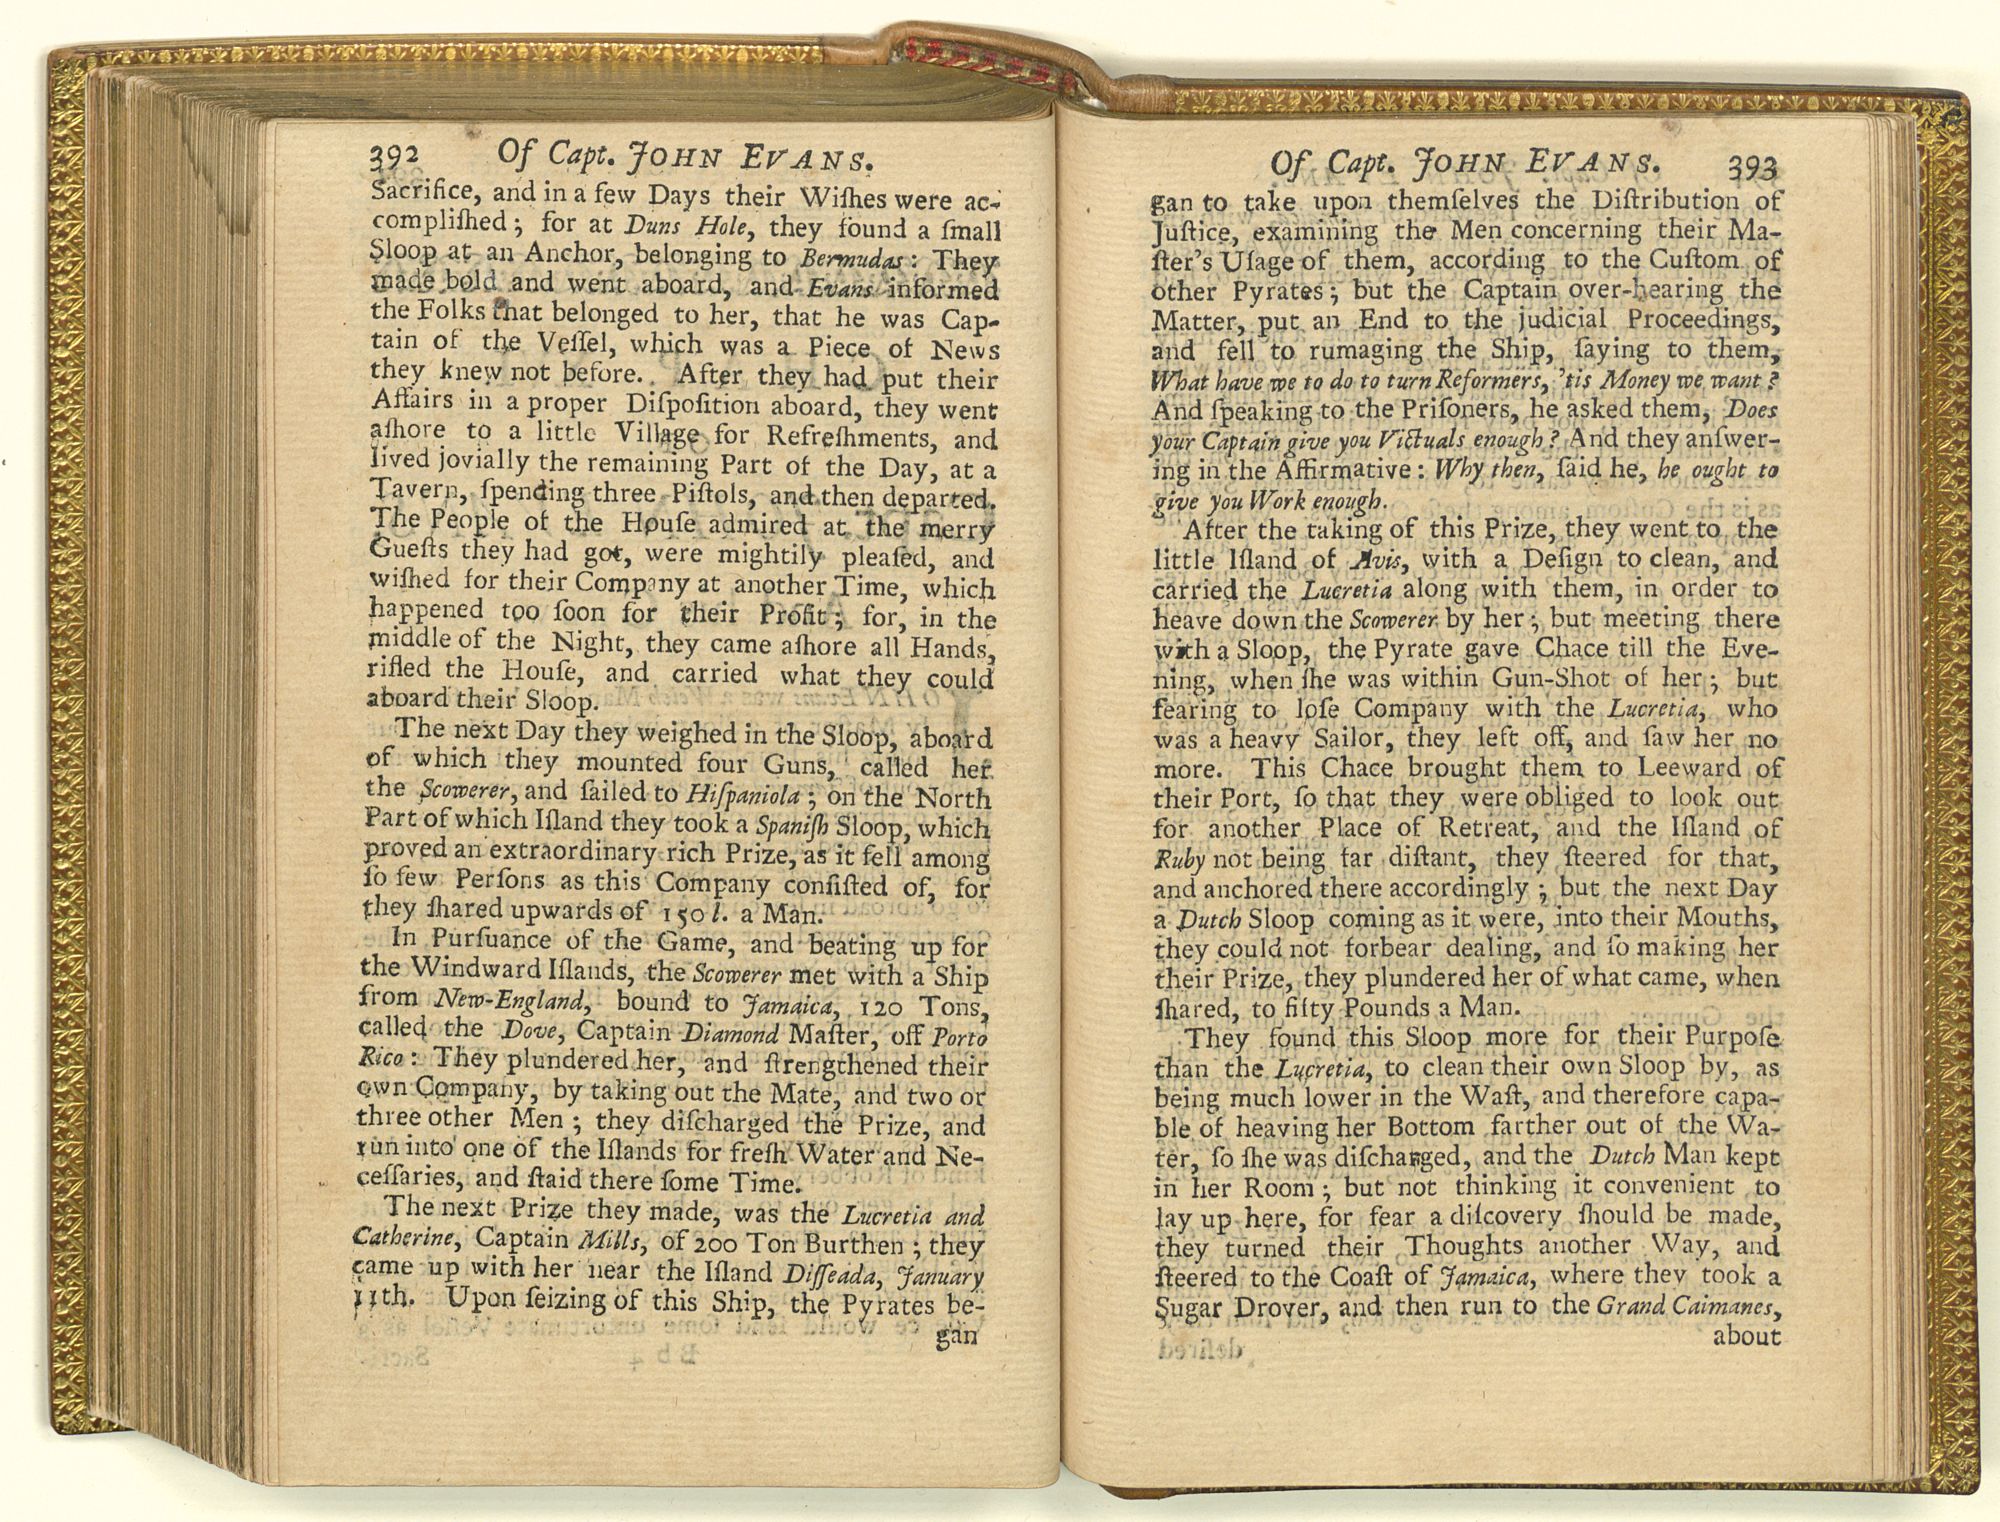 392 Of Capt. JOHN EVANS.
Sacrifice, and in a few Days their Wiſhes were ac-
compliſhed; for at Duns Hole, they found a ſmall
Sloop at an Anchor, belonging to Bermudas: They
made bold and went aboard, and Evans informed
the Folks that belonged to her, that he was Cap-
tain of the Veſſel, which was a Piece of News
they knew not before. After they had put their
Affairs in a proper Diſpoſition aboard, they went
aſhore to a little Village for Refreſhments, and
lived jovially the remaining Part of the Day, at a
Tavern, ſpending three Piſtols, and then departed.
The People of the Houſe admired at the merry
Gueſts they had got, were mightily pleaſed, and
wiſhed for their Company at another Time, which
happened too ſoon for their Profit; for, in the
middle of the Night, they came aſhore all Hands,
rifled the Houſe, and carried what they could
aboard their Sloop.
The next Day they weighed in the Sloop, aboard
of which they mounted four Guns, called her
the Scowerer, and ſailed to Hiſpaniola; on the North
Part of which Iſland they took a Spaniſh Sloop, which
proved an extraordinary rich Prize, as it fell among
ſo few Perſons as this Company conſiſted of, for
they ſhared upwards of 150 l. a Man.
In Purſuance of the Game, and beating up for
the Windward Iſlands, the Scowerer met with a Ship
from New-England, bound to Jamaica, 120 Tons,
called the Dove, Captain Diamond Maſter, off Porto
Rico: They plundered her, and ſtrengthened their
own Company, by taking out the Mate, and two or
three other Men; they diſcharged the Prize, and
run into one of the Iſlands for freſh Water and Ne-
ceſſaries, and ſtaid there ſome Time.
The next Prize they made, was the Lucretia and
Catherine, Captain Mills, of 200 Ton Burthen; they
came up with her near the Iſland Diſſeada, January
11th. Upon ſeizing of this Ship, the Pyrates be-
gan
Of Capt. JOHN EVANS. 393
gan to take upon themſelves the Diſtribution of
Juſtice, examining the Men concerning their Ma-
ſter's Uſage of them, according to the Cuſtom of
other Pyrates; but the Captain over-hearing the
Matter, put an End to the judicial Proceedings,
and fell to rumaging the Ship, ſaying to them,
What have we to do to turn Reformers, 'tis Money we want?
And ſpeaking to the Priſoners, he asked them, Does
your Captain give you Victuals enough? And they anſwer-
ing in the Affirmative: Why then, ſaid he, he ought to
give you Work enough.
After the taking of this Prize, they went to the
little Iſland of Avis, with a Deſign to clean, and
carried the Lucretia along with them, in order to
heave down the Scowerer by her; but meeting there
with a Sloop, the Pyrate gave Chace till the Eve-
ning, when ſhe was within Gun-Shot of her; but
fearing to loſe Company with the Lucretia, who
was a heavy Sailor, they left off, and ſaw her no
more. This Chace brought them to Leeward of
their Port, ſo that they were obliged to look out
for another Place of Retreat, and the Iſland of
Ruby not being far diſtant, they ſteered for that,
and anchored there accordingly; but the next Day
a Dutch Sloop coming as it were, into their Mouths,
they could not forbear dealing, and ſo making her
their Prize, they plundered her of what came, when
ſhared, to fifty Pounds a Man.
They found this Sloop more for their Purpoſe
than the Lucretia, to clean their own Sloop by, as
being much lower in the Waſt, and therefore capa-
ble of heaving her Bottom farther out of the Wa-
ter, ſo ſhe was diſcharged, and the Dutch Man kept
in her Room; but not thinking it convenient to
lay up here, for fear a diſcovery ſhould be made,
they turned their Thoughts another Way, and
ſteered to the Coaſt of Jamaica, where they took a
Sugar Drover, and then run to the Grand Caimanes,
about